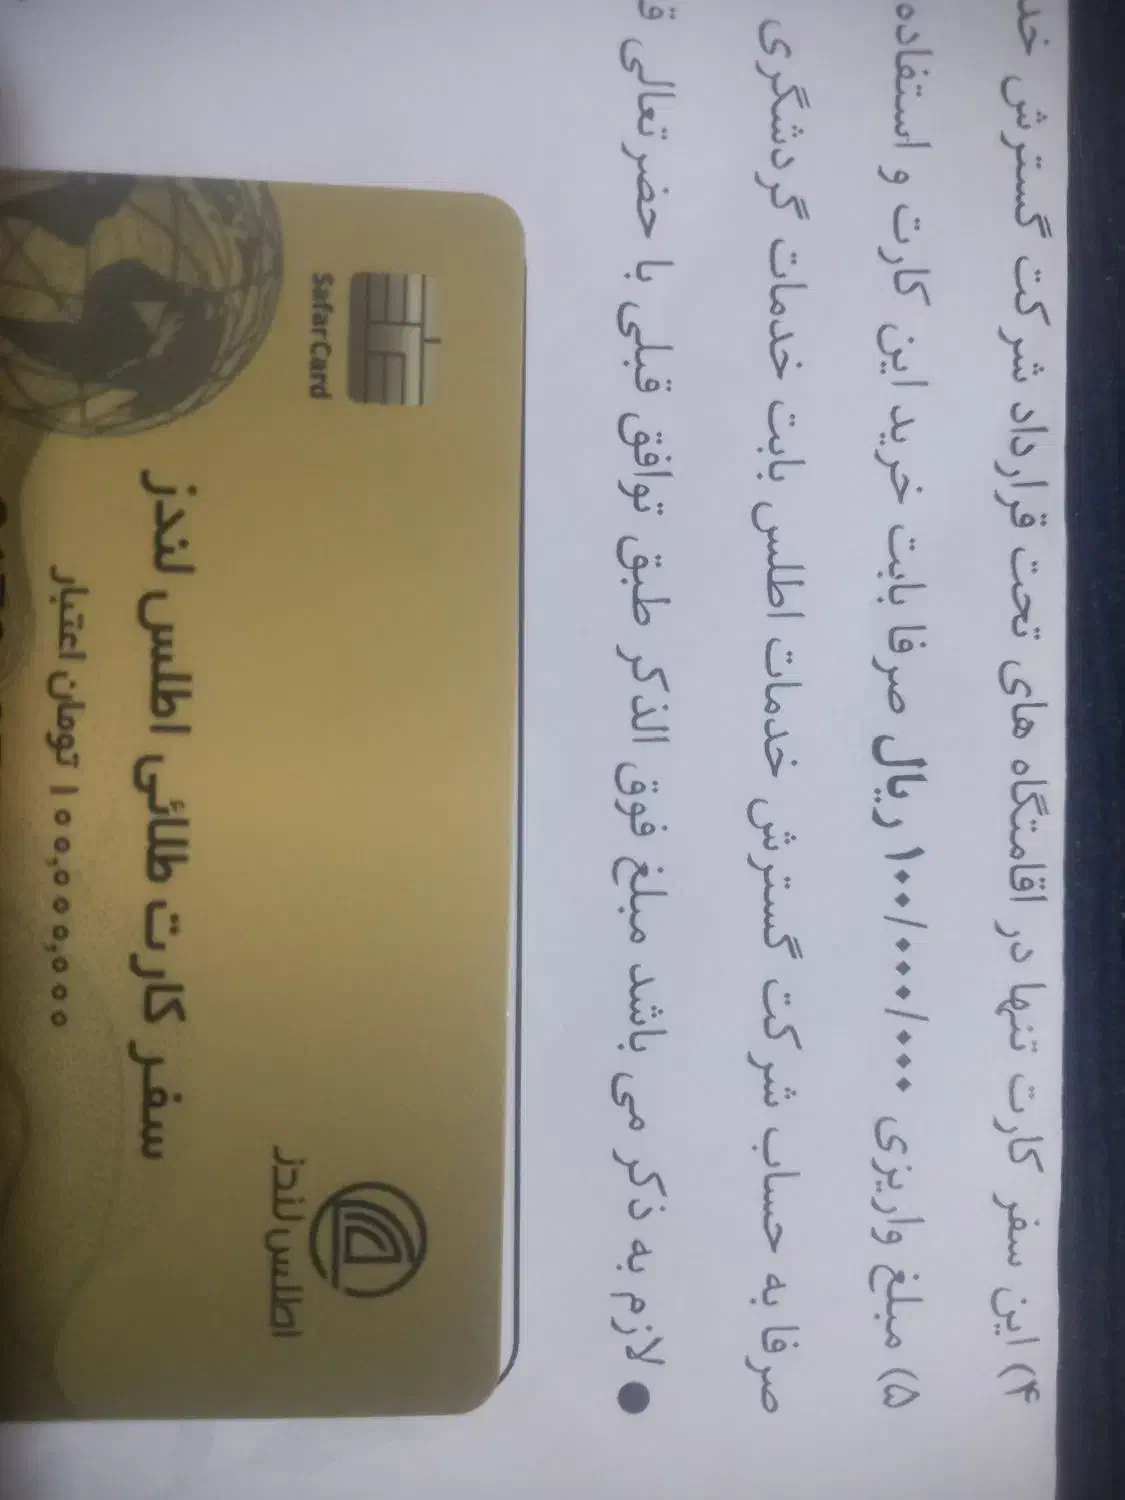 ۴) این سفر کارت تنها در اقامتگاه های تحت قرارداد شرکت گسترش
۵) مبلغ واریزی ۱۰۰/۰۰۰/۰۰۰ ریال صرفا بابت خرید این کارت و استفاده
صرفا به حساب شرکت گسترش خدمات اطلس بابت خدمات گردشگری
● لازم به ذکر می باشد مبلغ فوق الذکر طبق توافق قبلی با حضرتعالی
SafarCard
اطلس لندز
سفر کارت طلائی اطلس لندز
۱۰۰,۰۰۰,۰۰۰ تومان اعتبار